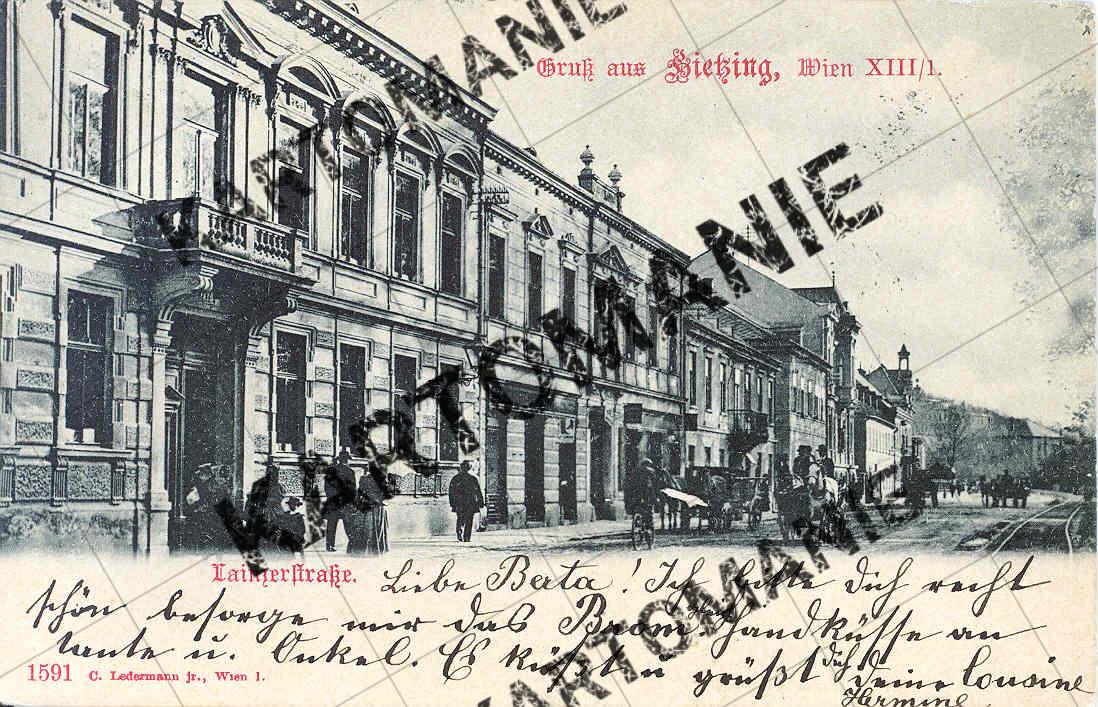 Gruß aus Hietzing, Wien XIII/1.
Lainzerstraße.
Liebe Berta! Ich bitte dich recht
schön besorge mir das Brom. Handküsse an
tante u. Onkel. Es küßt u grüßt dich deine Cousine
Hermine
1591 C. Ledermann jr., Wien 1.
KARTOMANIE
KARTOMANIE
KARTOMANIE
KARTOMANIE